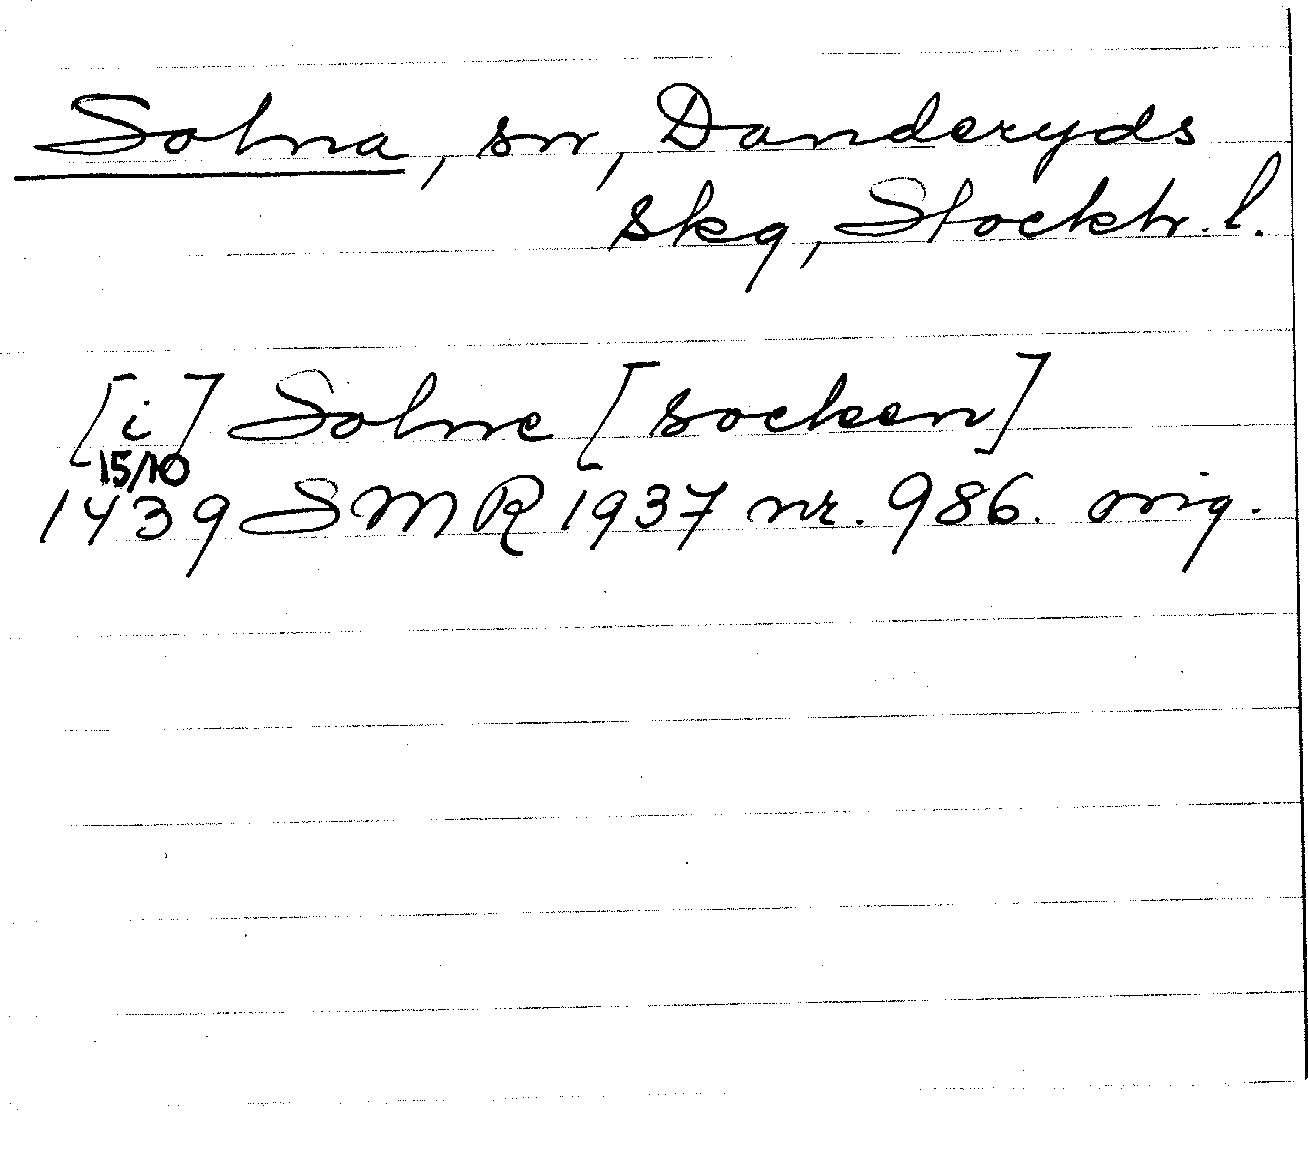 Solna, sn, Danderyds
skg, Stockh. l.
[i] Solne [socken]
15/10
1439 SMR 1937 nr. 986. orig.